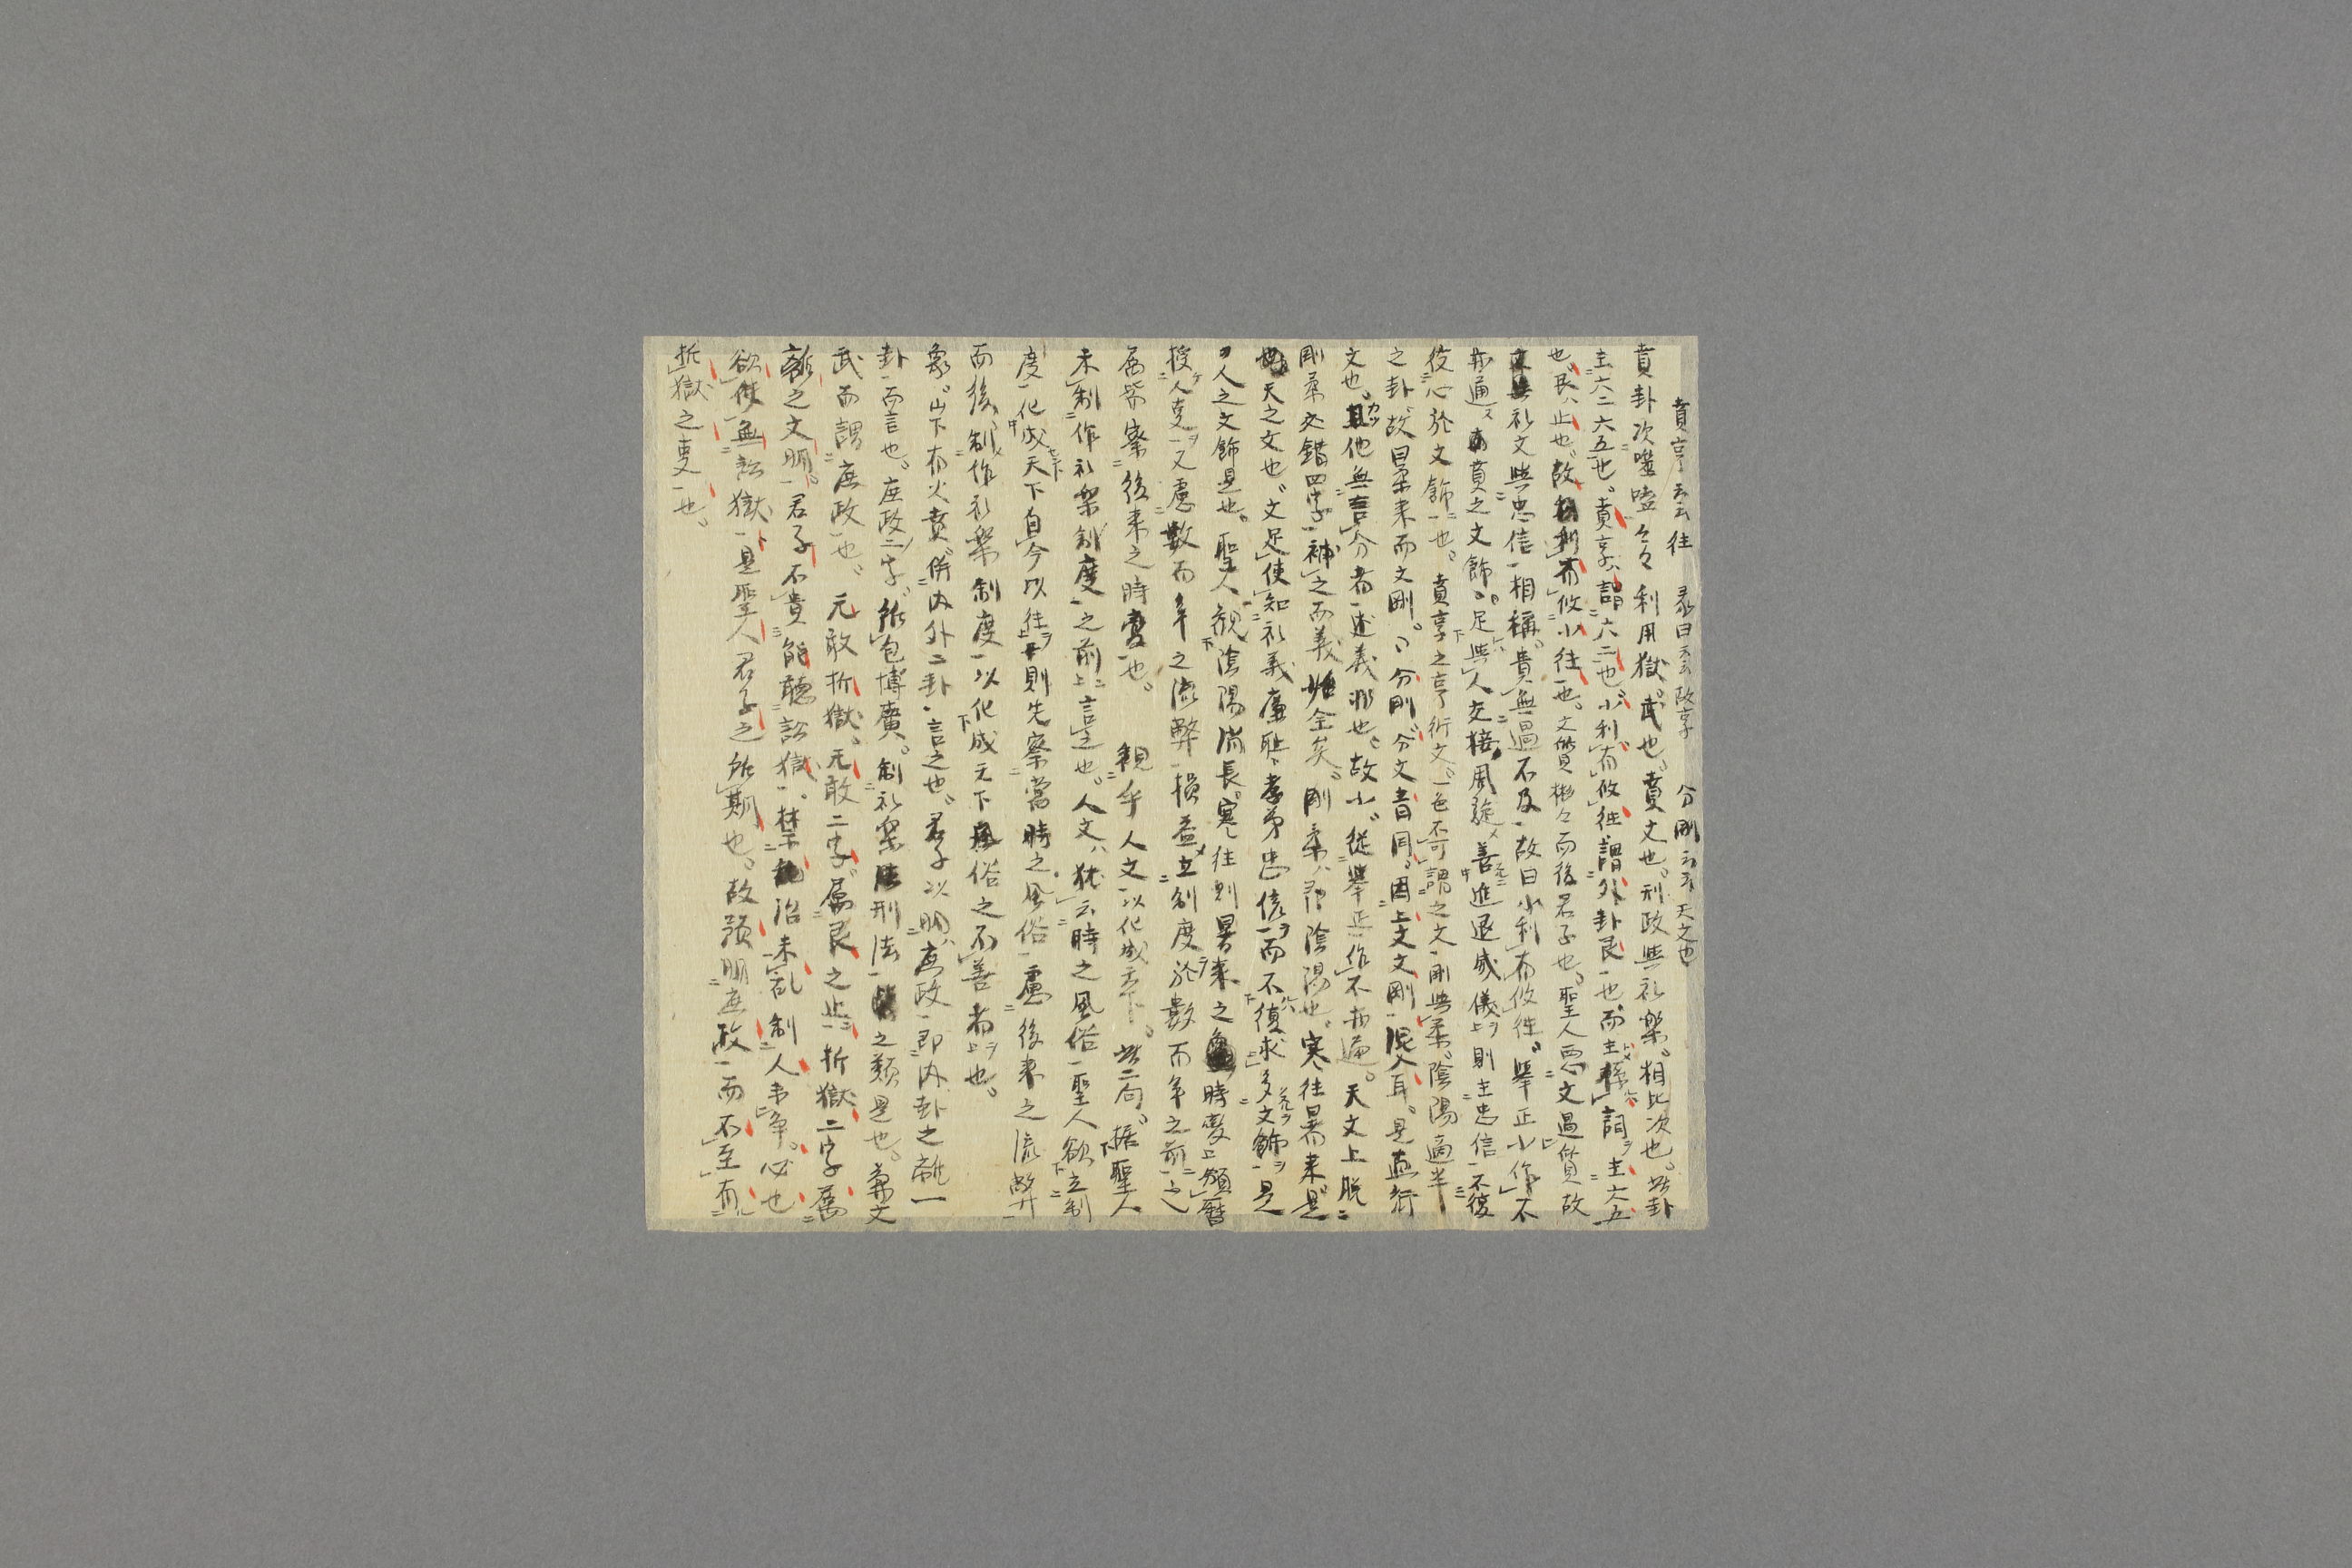 賁亨云云往 彖曰云云故亨 分剛云云天文也
賁卦次噬嗑々々利用獄。武也。賁文也。刑政與礼樂。相比次也。此卦
主六二六五也。賁亨、謂六二也。小利有攸往謂外卦艮一也。而主 詞主六五
也。艮、止也。故 利有攸小往一也。文質彬々而後君子也。聖人恶文過質故
礼文與忠信一相稱。貴無過不及一故曰小利有攸往。舉正小作不
通。 賁之文飾。足與人交接。周旋善進退威儀則主忠信一不復
役心於文飾一也。賁亨之亨衍文。一色不可謂之文一剛與柔。陰陽適半
之卦。故曰柔来而文剛。分剛、分文音同。因上文文剛一誤入耳。是直衍
文也。其他無害分者一述義非也。故小、從舉正作不 。天文上脱
剛柔交錯四字一補之而義始全矣。剛柔、即陰陽也。寒往暑来。是
天之文也。文足使知礼義廉耻、孝弟忠信一而不復求多文飾一是
人之文飾是也。聖人観陰陽消長。寒往則暑来之 時變頒暦
授人 一又慮數而年之流弊一損益立制度於數而年之前一
 察後来之時變一也。 観乎人文一以化成天下。此二句。据聖人
未制作礼樂制度一之前言之也。人文、猶云時之風俗一聖人欲立制
度一化成天下自今以往則先察當時之風俗一慮後来之流弊一
而後、制作礼樂制度一以化成天下風俗之不善者也。
象。山下有火賁、併内外二卦一言之也。君子以明、庶政一即内卦之離一
卦一而言也。庶政二字、所包博廣。制礼樂 刑法一之類是也。兼文
武而謂庶政一也。 无敢折獄。无敢二字、属艮之止一折獄二字属
離之文明一。君子不貴能聽訟獄一。禁 治未乱制人未争。必也
欲使一無訟獄一是聖人君子之所期也。故須明庶政一而不至有
折獄之事一也。